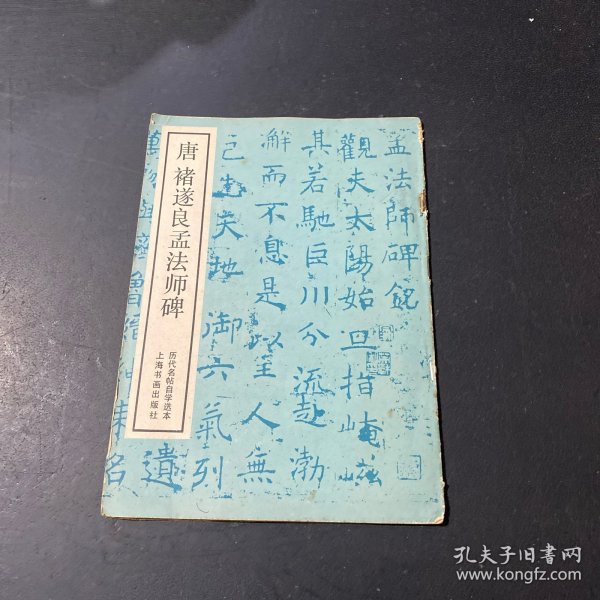 唐 褚遂良孟法师碑
历代名帖自学选本
上海书画出版社
孟法師碑銘
觀夫太陽始旦指崦嵫
其若馳巨川分流赴渤
澥而不息是以至人無
己建天地 御六氣列
遺
名
孔夫子旧书网
www.kongfz.com